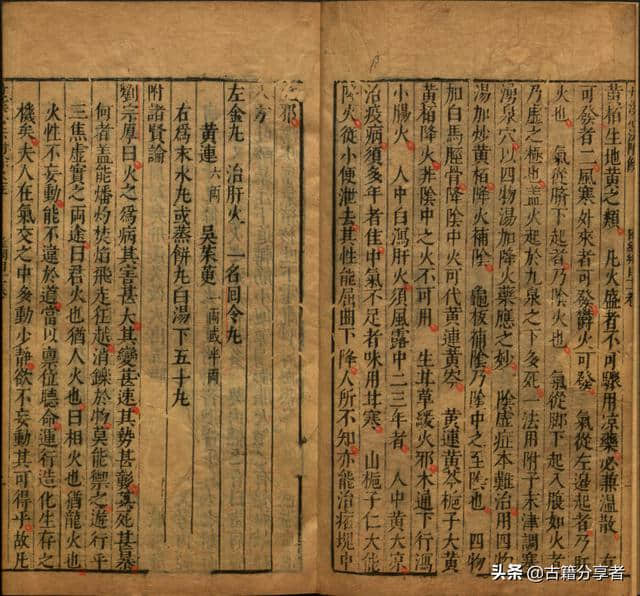 黃栢生地黃之類 凡火盛者不可驟用凉藥必兼溫散 有
可發者二風寒外來者可發鬱火可發 氣從左邊起者乃肝
火也 氣從臍下起者乃陰火也 氣從脚下起入腹如火者
乃虛之極也蓋火起於九泉之下多死一法用附子末津調塞
湧泉穴以四物湯加降火藥應之妙 陰虛症本難治用四物
湯加炒黃栢降火補陰 龜板補陰乃陰中之至陰也 四物
加白馬脛骨降陰中火可代黃連黃芩 黃連黃芩栀子大黃
黃栢降火非陰中之火不可用 生甘草緩火邪木通下行瀉
小腸火 人中白瀉肝火須風露中二三年者 人中黃大凉
治疫病須多年者佳中氣不足者味用甚寒 山栀子仁大能
降火從小便泄去其性能屈曲下降人所不知亦能治痞塊中
火邪
入方
左金丸 治肝火 一名回令丸
黃連六兩 吳茱萸一兩或半兩
右爲末水丸或蒸餅丸白湯下五十丸
附諸賢論
劉宗厚曰火之爲病其害甚大其變甚速其勢甚彰其死甚暴
何者蓋能燔灼焚焰飛走狂越消鑠於物莫能禦之遊行乎
三焦虛實之兩途曰君火也猶人火也曰相火也猶龍火也
火性不妄動能不違於道當以稟位聽命運行造化生存之
機矣夫人在氣交之中多動少靜欲不妄動其可得乎故凡
头条 @古籍分享者